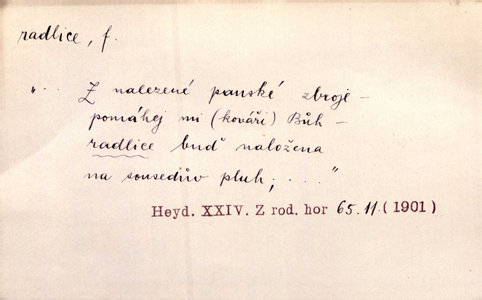 radlice, f.
„. . Z nalezené panské zbroje –
pomáhej mi (kováři) Bůh –
radlice buď naložena
na sousedův pluh; . . . . "
Heyd. XXIV. Z rod. hor 65.11 (1901)